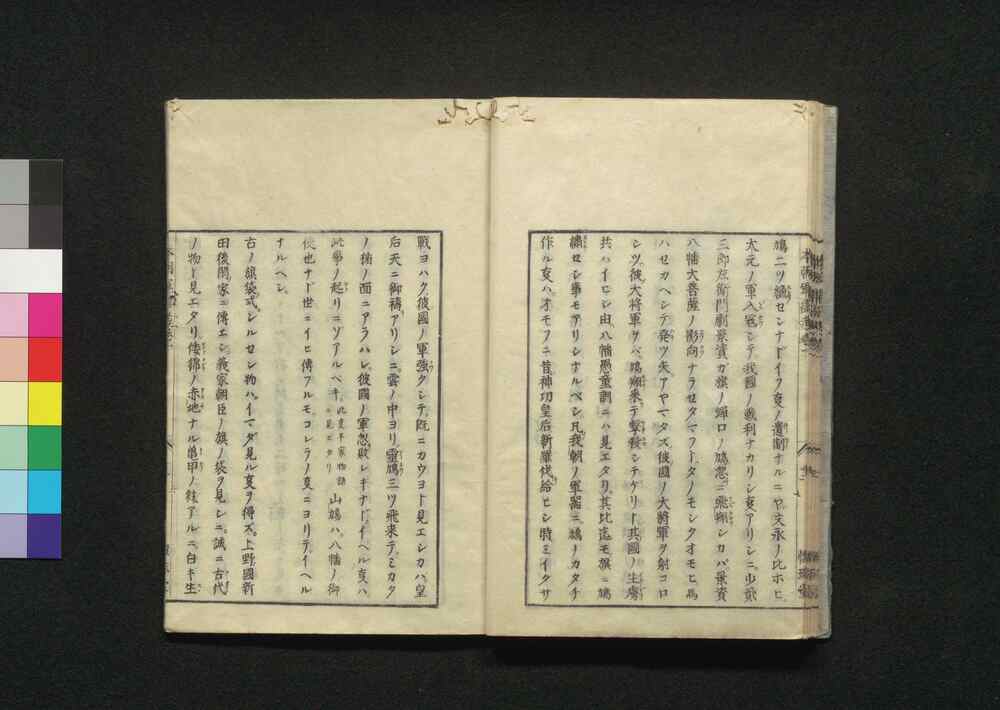 鳩二ツ繡セシナドイフ事ノ遺制ナルニヤ文永ノ比ホヒ
太元ノ軍入寇シテ我國ノ戰利ナカリシ事アリシニ少貳
三郎左衛門尉景資ガ旗ノ蟬口ノ鳩忽ニ飛翔シカバ景資
八幡大菩薩ノ影向ナラセタマフトタノモシクオモヒ馬
ハセカヘシテ発ツ矢アヤマタズ彼國ノ大將軍ヲ射コロ
シツ彼大將軍ヲバ鳩翔来テ撃殺シテケリト其國ノ生虜
共ハイヒシ由八幡愚童訓ニハ見エタリ其比迄モ旗ニ鳩
繡セシ事モアリシナルベシ凡我朝ノ軍器ニ鳩ノカタチ
作ル事ハオモフニ昔神功皇后新羅伐給ヒシ時ミイクサ
戰ヨハク彼國ノ軍強クシテ既ニカウヨト見エシカハ皇
后天ニ御禱アリシニ雲ノ中ヨリ靈鳩三ツ飛来テミカタ
ノ楯ノ面ニアラハレ彼國ノ軍忽敗レキナドイヘル事ハ
此等ノ起リニゾアルベキ此事平家物語ニ見エタリ山鳩ハ八幡ノ御
使也ナド世ニイヒ傳フルモコレラノ事ニヨリテイヘル
ナルヘシ
古ノ旗袋式シルセシ物ハイマダ見ル事ヲ得ズ上野國新
田後閑家ニ傳エシ義家朝臣ノ旗ノ袋ヲ見シニ誠ニ古代
ノ物ト見エタリ倭錦ノ赤地ナル亀甲ノ紋アルニ白キ生